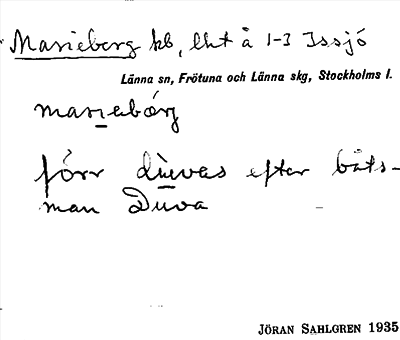 Marieberg kb, lht å 1-3 Issjö
Länna sn, Frötuna och Länna skg, Stockholms l.
marɪabórg
förr duvas efter båts-
man Duva
JÖRAN SAHLGREN 1935